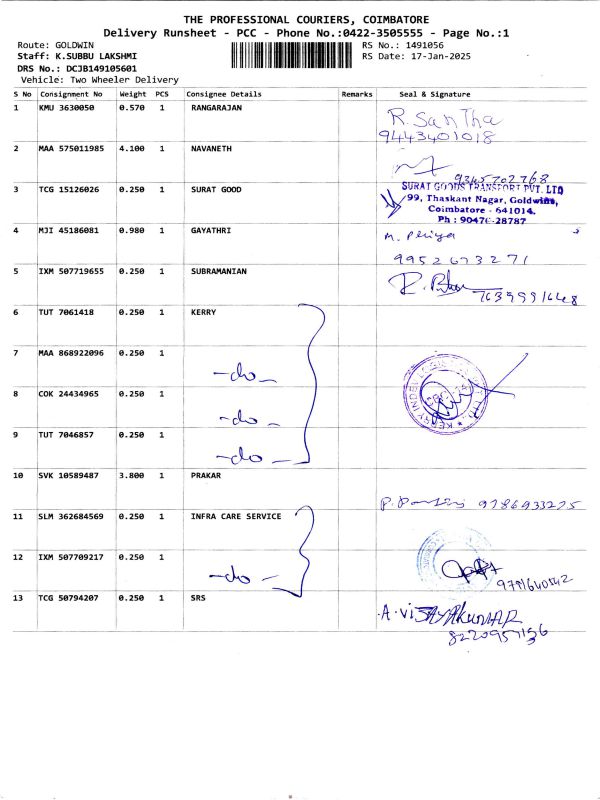 THE PROFESSIONAL COURIERS, COIMBATORE
Delivery Runsheet - PCC - Phone No.:0422-3505555 - Page No.:1
Route: GOLDWIN
Staff: K.SUBBU LAKSHMI
DRS No.: DCJB149105601
Vehicle: Two Wheeler Delivery
RS No.: 1491056
RS Date: 17-Jan-2025
S No Consignment No Weight PCS Consignee Details Remarks Seal & Signature
1 KMU 3630050 0.570 1 RANGARAJAN R. SanTha
9443401018
2 MAA 575011985 4.100 1 NAVANETH
9345702768
3 TCG 15126026 0.250 1 SURAT GOOD SURAT GOODS TRANSPORT PVT. LTD
99, Thaskant Nagar, Goldwins,
Coimbatore - 641014.
Ph : 90476-28787
4 MJI 45186081 0.980 1 GAYATHRI M. Periya
9952673271
5 IXM 507719655 0.250 1 SUBRAMANIAN
7639991648
6 TUT 7061418 0.250 1 KERRY
7 MAA 868922096 0.250 1
-do-
8 COK 24434965 0.250 1
-do-
9 TUT 7046857 0.250 1
-do-
10 SVK 10589487 3.800 1 PRAKAR
9786933275
11 SLM 362684569 0.250 1 INFRA CARE SERVICE
12 IXM 507709217 0.250 1
-do-
9791640542
13 TCG 50794207 0.250 1 SRS A. VIJAYAKUMAR